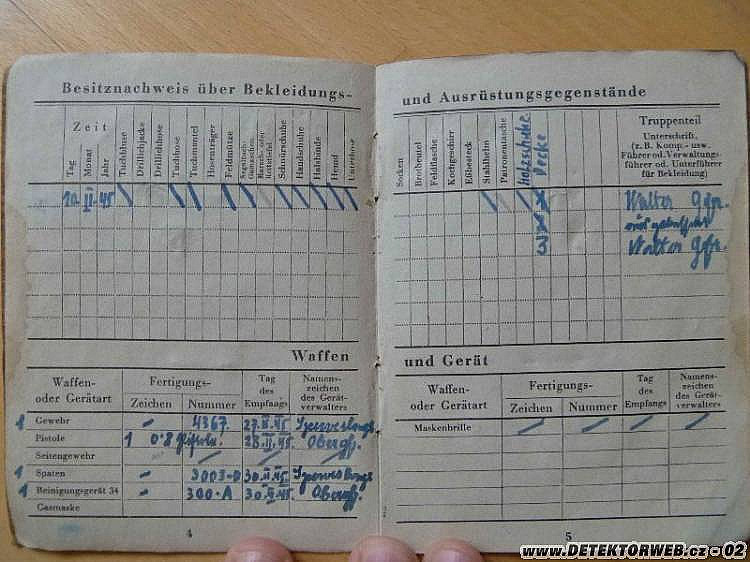 Besitznachweis über Bekleidungs-
Zeit
Tag
Monat
Jahr
Tuchhose
Drillichjacke
Drillichhose
Tuchhose
Tuchmantel
Hosenträger
Feldmütze
Schnürschuhe
Handschuhe
Halsbinde
Hemd
Unterhose
10. II. 45
Waffen
Waffen-
oder Gerätart
Fertigungs-
Zeichen
Nummer
Tag
des
Empfangs
Namens-
zeichen
des Gerät-
verwalters
1 Gewehr - 4367. 27.II.45.
Pistole 1 08 Pistole. 28.II.45. Obergfr.
Seitengewehr
1 Spaten - 3003-D 30.II.45.
1 Reinigungsgerät 34 - 300-A 30.II.45. Obergfr.
Gasmaske
4
und Ausrüstungsgegenstände
Socken
Brotbeutel
Feldflasche
Kochgeschirr
Eßbesteck
Stahlhelm
Patronentasche
Holzschuhe
Decke
Truppenteil
Unterschrift,
(z. B. Komp.- usw.
Führer od. Verwaltungs-
führer od. Unterführer
für Bekleidung)
Walter Gfr.
3 Walter Gfr.
und Gerät
Waffen-
oder Gerätart
Fertigungs-
Zeichen
Nummer
Tag
des
Empfangs
Namens-
zeichen
des Gerät-
verwalters
Maskenbrille
5
www.DETEKTORWEB.cz - 02